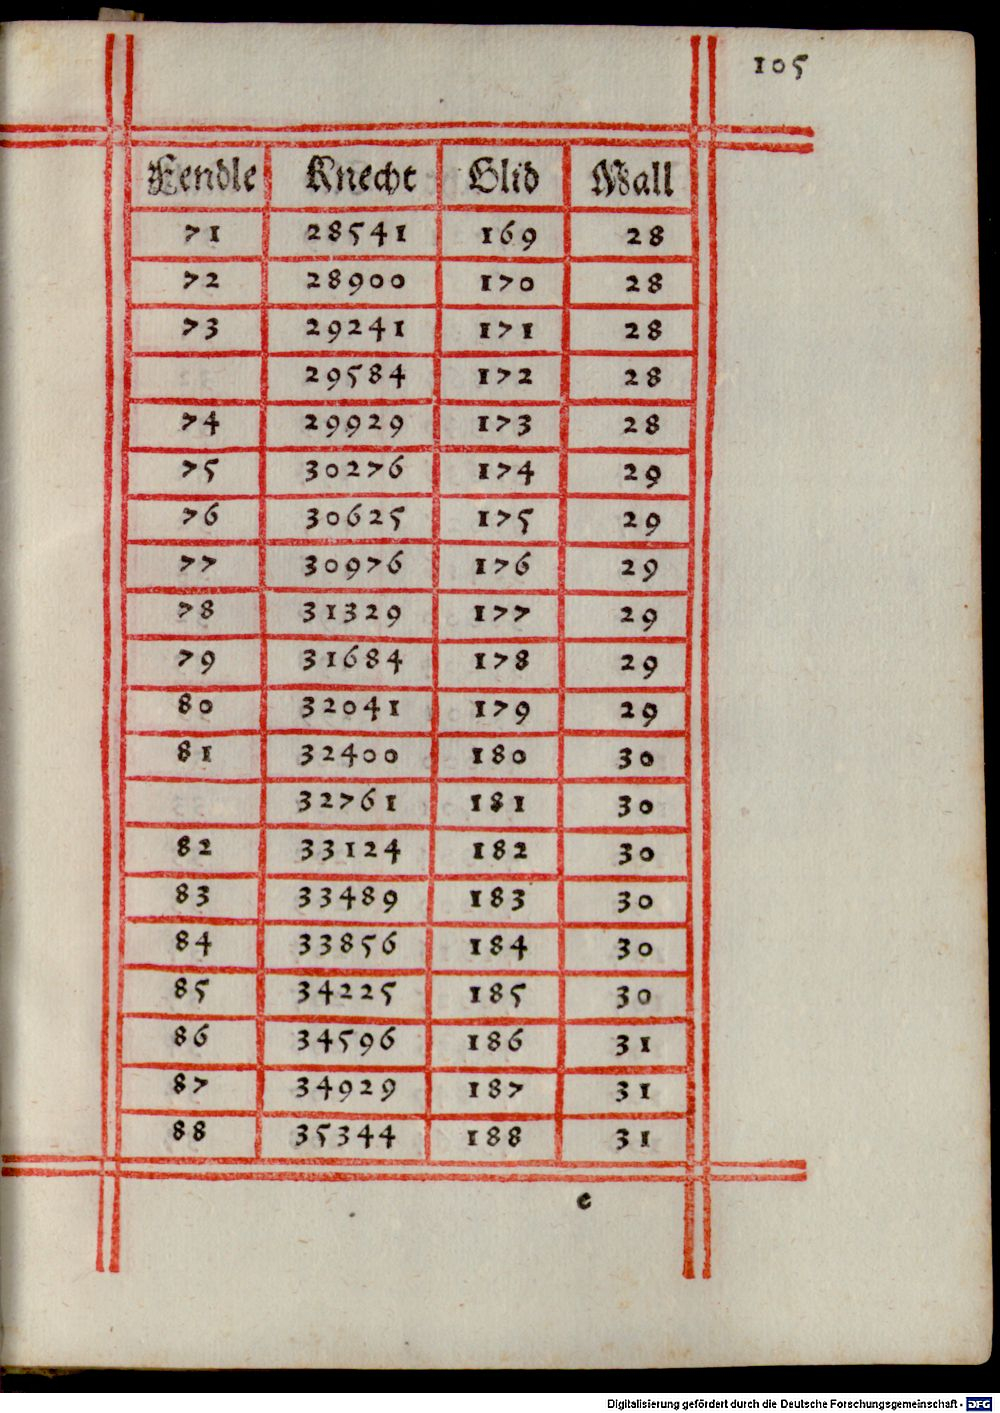 105
Fendle Knecht Glid Wall
71 28541 169 28
72 28900 170 28
73 29241 171 28
29584 172 28
74 29929 173 28
75 30276 174 29
76 30625 175 29
77 30976 176 29
78 31329 177 29
79 31684 178 29
80 32041 179 29
81 32400 180 30
32761 181 30
82 33124 182 30
83 33489 183 30
84 33856 184 30
85 34225 185 30
86 34596 186 31
87 34929 187 31
88 35344 188 31
e
Digitalisierung gefördert durch die Deutsche Forschungsgemeinschaft - DFG